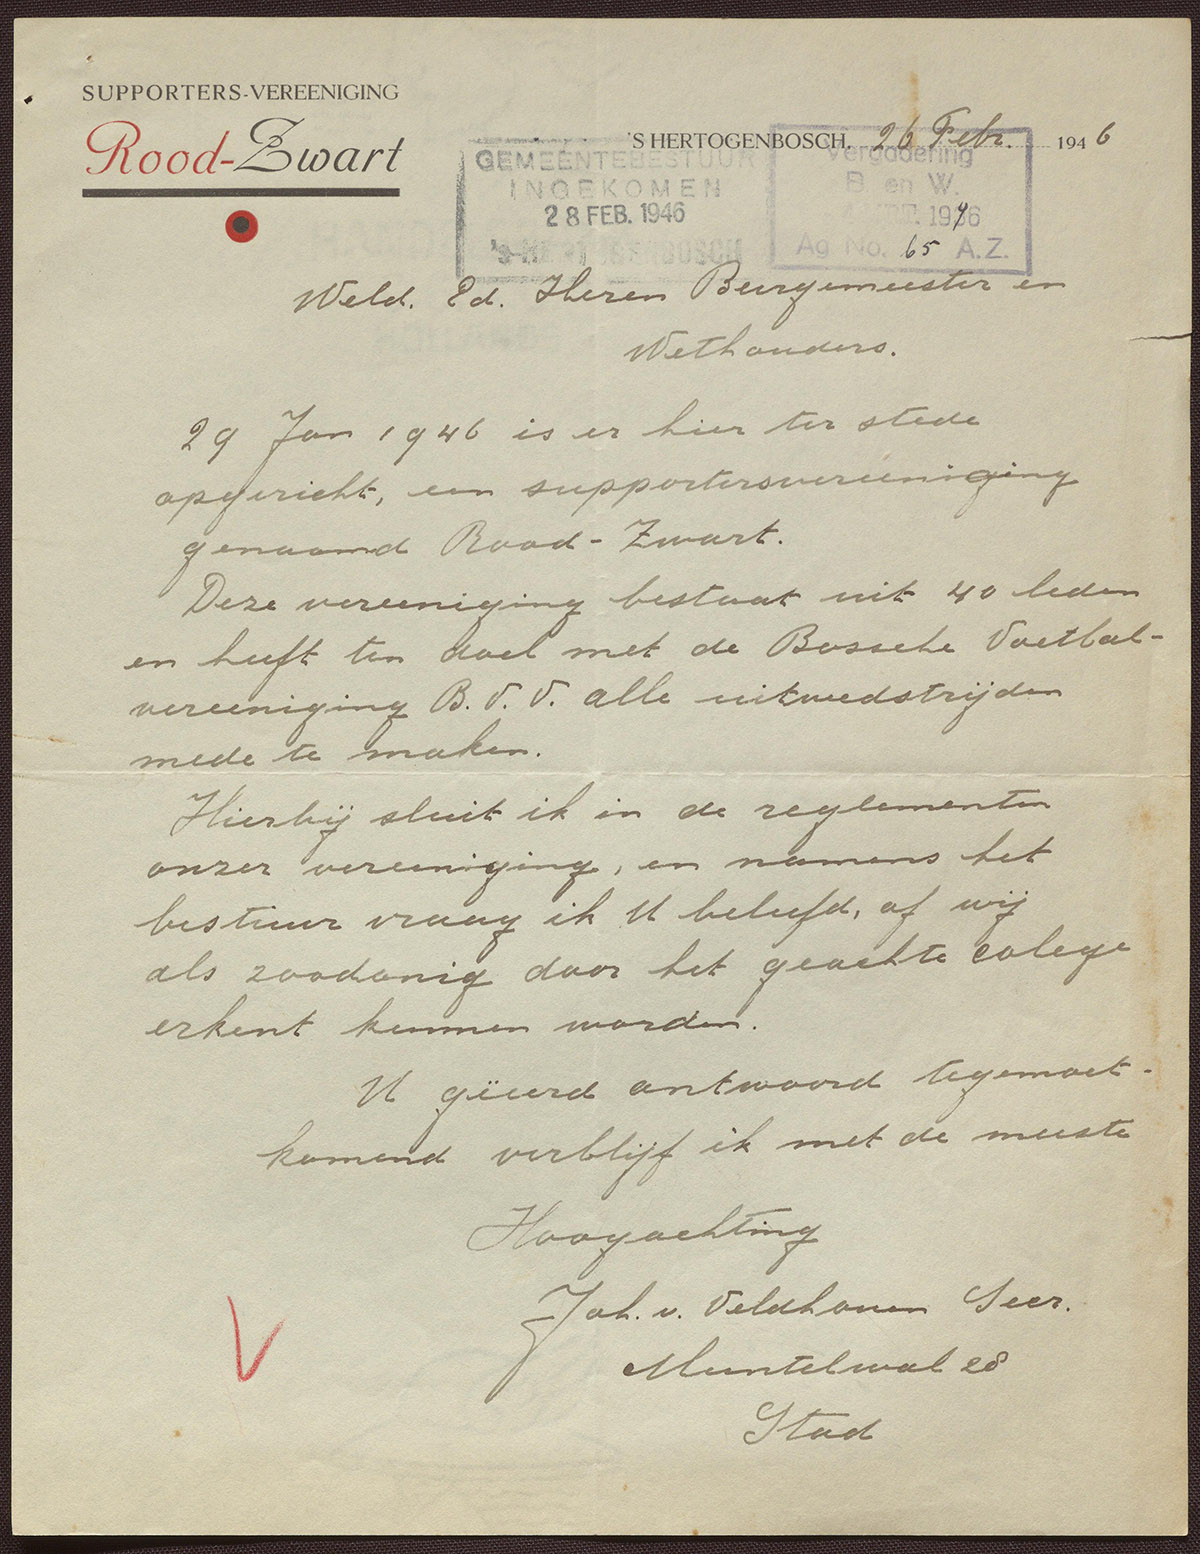 SUPPORTERS-VEREENIGING
Rood-Zwart
'S HERTOGENBOSCH, 26 Febr. 1946
GEMEENTEBESTUUR
INGEKOMEN
28 FEB. 1946
's-HERTOGENBOSCH
Vergadering
B. en W.
1946
Ag No. 65 A.Z.
Weld. Ed. Heren Burgemeester en
Wethouders.
29 Jan 1946 is er hier ter stede
opgericht, een supportersvereeniging
genaamd Rood-Zwart.
Deze vereeniging bestaat uit 40 leden
en heeft ten doel met de Bossche Voetbal-
vereeniging B.V.V. alle uitwedstrijden
mede te maken.
Hierbij sluit ik in de reglementen
onzer vereeniging, en namens het
bestuur vraag ik U beleefd, of wij
als zoodanig door het geachte colege
erkent kunnen worden.
U geëerd antwoord tegemoet-
komend verblijf ik met de meeste
Hoogachting
Joh. v. Veldhoven Secr.
Muntelwal 28
Stad